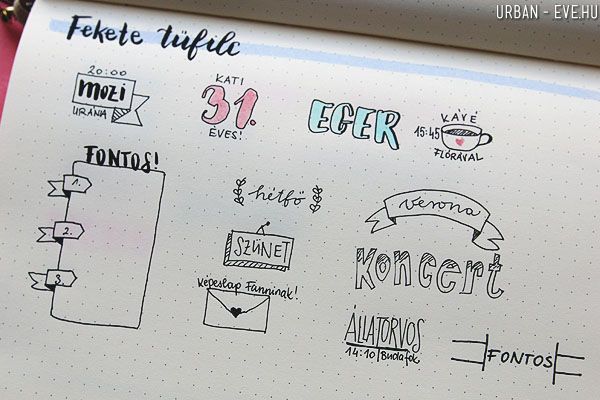 URBAN - EVE.HU
Fekete tűfilc
20:00
MOZI
URÁNIA
KATI
31.
ÉVES!
EGER
KÁVÉ
15:45
FLÓRÁVAL
FONTOS!
1.
2.
3.
hétfő
SZÜNET
Képeslap Fanninak!
verona
Koncert
ÁLLATORVOS
14:10 | Budafok
FONTOS